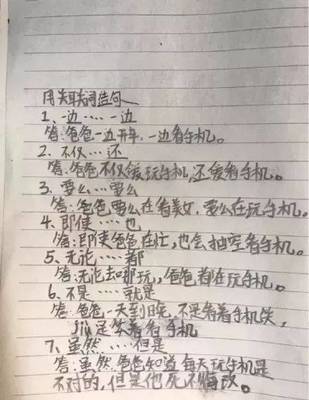 用关联词造句
1、一边……一边
答:爸爸一边开车,一边看手机。
2、不仅…还
答:爸爸不仅爱玩手机,还爱看手机。
3、要么…要么
答:爸爸要么在看美女,要么在玩手机。
4、即使…也
答:即使爸爸在忙,也会抽空看手机。
5、无论……都
答:无论去哪玩,爸爸都在玩手机。
6、不是……就是
答:爸爸一天到晚,不是看着手机笑,
jiù是笑着看手机
7、虽然……但是
答:虽然爸爸知道每天玩手机是
不对的,但是他死不悔改。